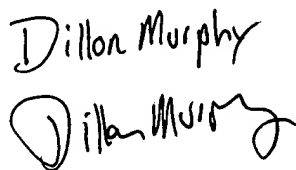 Dillon Murphy
Dillon Murphy